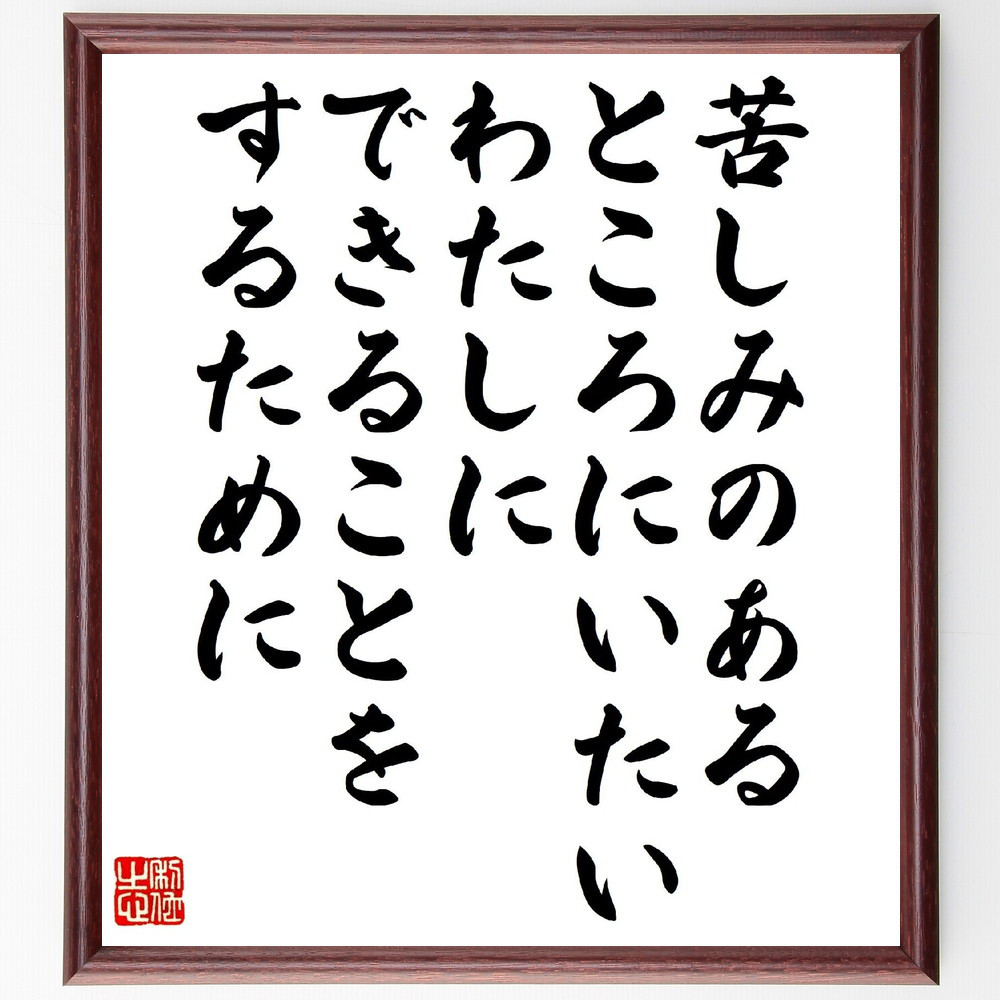 苦しみのある
ところにいたい
わたしに
できることを
するために